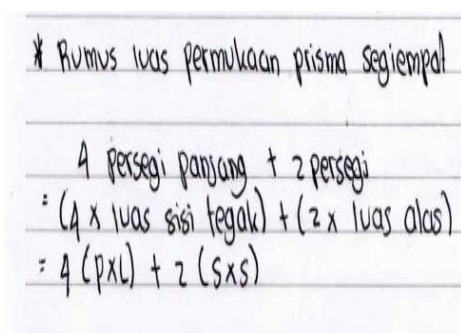 * Rumus luas permukaan prisma segiempat
4 persegi panjang + 2 persegi
= (4 x luas sisi tegak) + (2 x luas alas)
= 4 (pxL) + 2 (sxs)